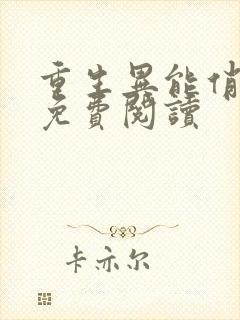 重生異能俏
免費閱讀
卡亦尔